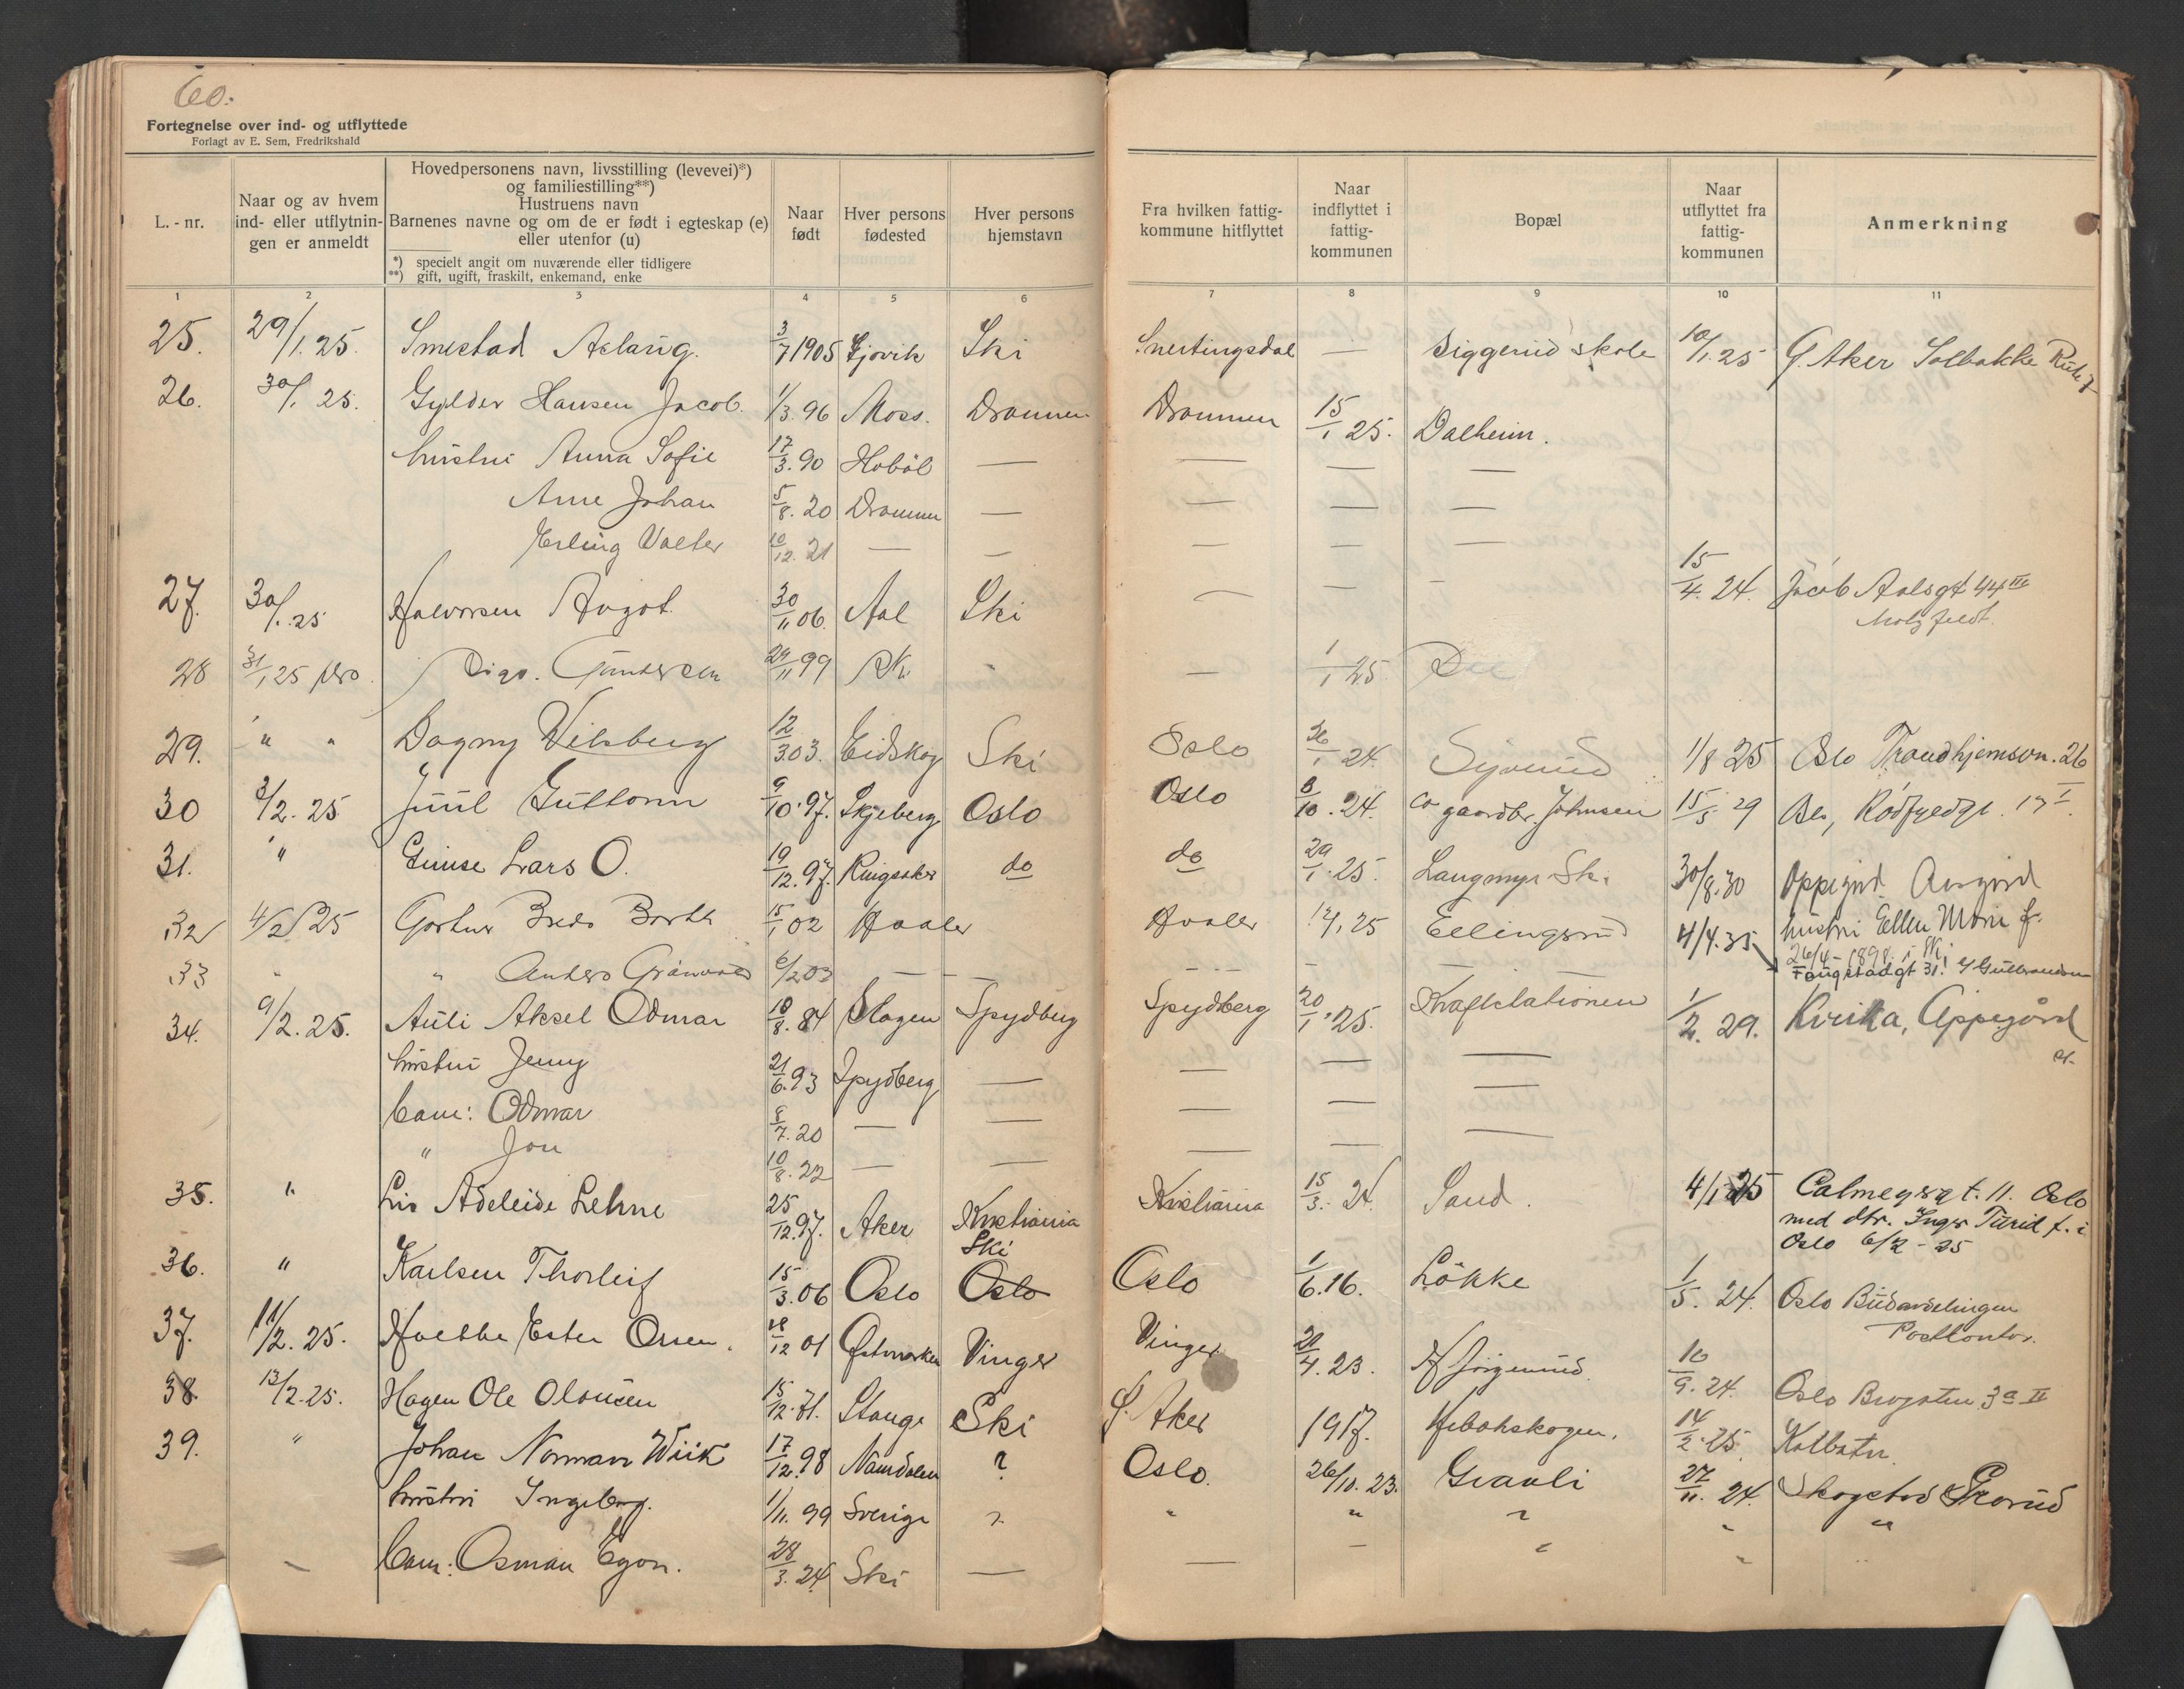 60.
Fortegnelse over ind- og utflyttede
Forlagt av E. Sem, Fredrikshald
L.-nr.
Naar og av hvem
ind- eller utflytnin-
gen er anmeldt
Hovedpersonens navn, livsstilling (levevei)*)
og familiestilling**)
Hustruens navn
Barnenes navne og om de er født i egteskap (e)
eller utenfor (u)
*) specielt angit om nuværende eller tidligere
**) gift, ugift, fraskilt, enkemand, enke
Naar
født
Hver persons
fødested
Hver persons
hjemstavn
Fra hvilken fattig-
kommune hitflyttet
Naar
indflyttet i
fattig-
kommunen
Bopæl
Naar
utflyttet fra
fattig-
kommunen
Anmerkning
1 2 3 4 5 6 7 8 9 10 11
25. 29/1.25. Smestad Aslaug. 3/7 1905 Gjøvik Ski Snertingsdal — Siggerud skole 10/1.25 G. Aker Solbakke
26. 30/1 25. Gylder Hansen Jacob. 1/3.96 Moss. Drammen Drammen 15/1 25. Dalheim.
hustru Anna Sofie 17/3.90 Hobøl — — — —
Arne Johan 5/8.20 Drammen — — — —
Erling Valter 10/12.21 — — — — —
27. 30/1.25 Halvorsen Margot 30/11 06. Aal Ski — — - 15/4.24. Jacob Aalsgt 44 III
28 31/1 25 Gundersen 29/11 99 Ski - — 1/1 25
29. " " Dagny Vilsberg 12/3 03. Eidskog Ski Oslo 24. 1/8 25 Oslo Trondhjemsvn. 26
30 3/2. 25 Juul Guttorm 9/10.97. Skjeberg Oslo Oslo 8/10.24. co gaardbr. Johnsen 15/5 29
31. " Gunse Lars O. 19/12.97. Ringsaker do do 29/1.25. Langmyr Sk. 30/8.30 Oppegård
32 4/2 25 15/1 02 Hvaler Hvaler 25 Ellingsrud 4/4.35 hustru Ellen Marie f.
26/4-1898 i Ski
33 " " Anders 6/2 03 — — — — — Fougstadgt 31.
34. 9/2.25. Auli Aksel Odmar 10/8.84 Slagen Spydberg Spydberg 20/1.25. Kraftstationen 1/2.29. Oppegård
hustru Jenny 21/6.93 Spydberg — — — —
barn: Odmar 8/7.20 — — — — —
" Jon 10/8.22 — — — — —
35. " Liv Adeleide Lehne 25/12.97. Aker Kristiania Kristiania 15/3.24. Sand. 4/1 25 Calmeyersgt. 11. Oslo
med dtr. Inger Turid f. i
Oslo 6/2-25
36. " Karlsen Thorleif 15/3.06 Oslo Ski Oslo Oslo 1/6.16. Løkke 1/5.24. Oslo Budavdelingen
Postkontor.
37. 11/2.25. Ester 12 01 Østmarken Vinger Vinger 4.23. 10/9.24. Oslo
38. 13/2.25. Hagen Ole Olausen 15/12.71. Stange Ski Ø. Aker 1917. 14/2.25. Kolbotn
39. " Johan Norman Wiik 17/12.98 Namdalen ? Oslo. 26/10.23. Gravli 27/11.24. Skogstad Grorud
hustru Ingeborg. 1/11.99 Sverige " " " " " "
barn: Osman Egon. 28/3.24 Ski — — — " "